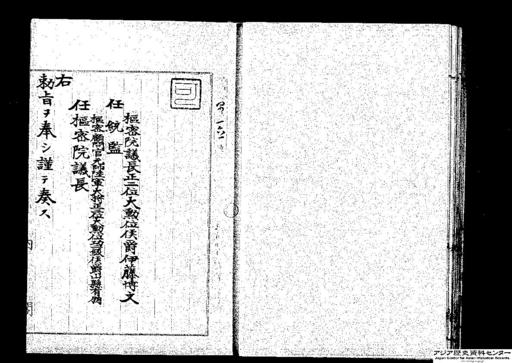 樞密院議長正二位大勲位侯爵伊藤博文
任統監
樞密顧問官元帥陸軍大将正二位大勲位功二級侯爵山縣有朋
任樞密院議長
右
勅旨ヲ奉シ謹テ奏ス
内閣
アジア歴史資料センター
Japan Center for Asian Historical Records